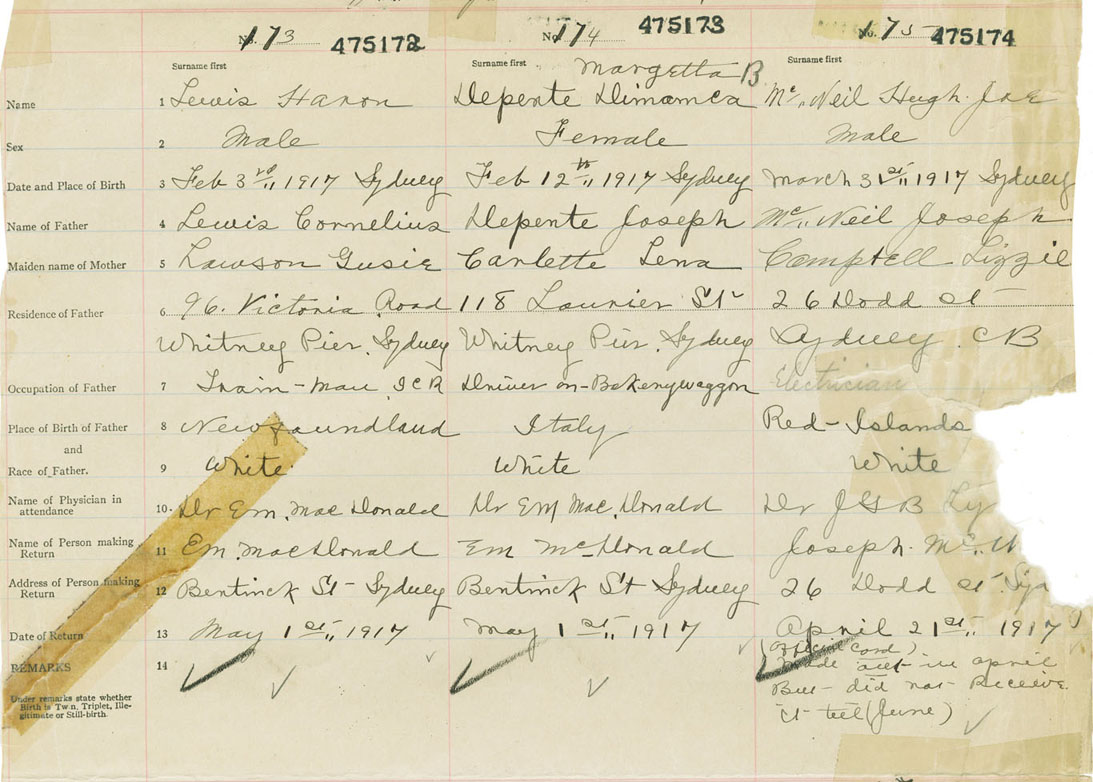 No. 173 475172 No. 174 475173 No. 175 475174
Surname first Surname first Surname first
Margetta B
Name 1 Lewis Haron Depente Dimamca Mc Neil Hugh. Jos
Sex 2 Male Female Male
Date and Place of Birth 3 Feb 3rd 1917 Sydney Feb 12th 1917 Sydney March 31st 1917 Sydney
Name of Father 4 Lewis Cornelius Depente Joseph Mc Neil Joseph
Maiden name of Mother 5 Lawson Gusie Carlette Lena Campbell Lizzie
Residence of Father 6 96. Victoria Road 118 Laurier St 26 Dodd St
Whitney Pier. Sydney Whitney Pier. Sydney Sydney. CB
Occupation of Father 7 Train-man I C R Driver on-Bakerywaggon Electrician
Place of Birth of Father 8 Newfoundland Italy Red-Islands
and
Race of Father. 9 White White White
Name of Physician in
attendance 10 Dr Em. MacDonald Dr EM Mac. Donald Dr J G B
Name of Person making
Return 11 Em. MacDonald Em McDonald Joseph. Mc. N
Address of Person making
Return 12 Bentinck St - Sydney Bentinck St Sydney 26 Dodd St. Syd
Date of Return 13 May 1st 1917 May 1st 1917 April 21st 1917
(official Card)
REMARKS 14 Made out in april
But did not Receive
it teel (June)
Under remarks state whether
Birth is Twin, Triplet, Ille-
gitimate or Still-birth.